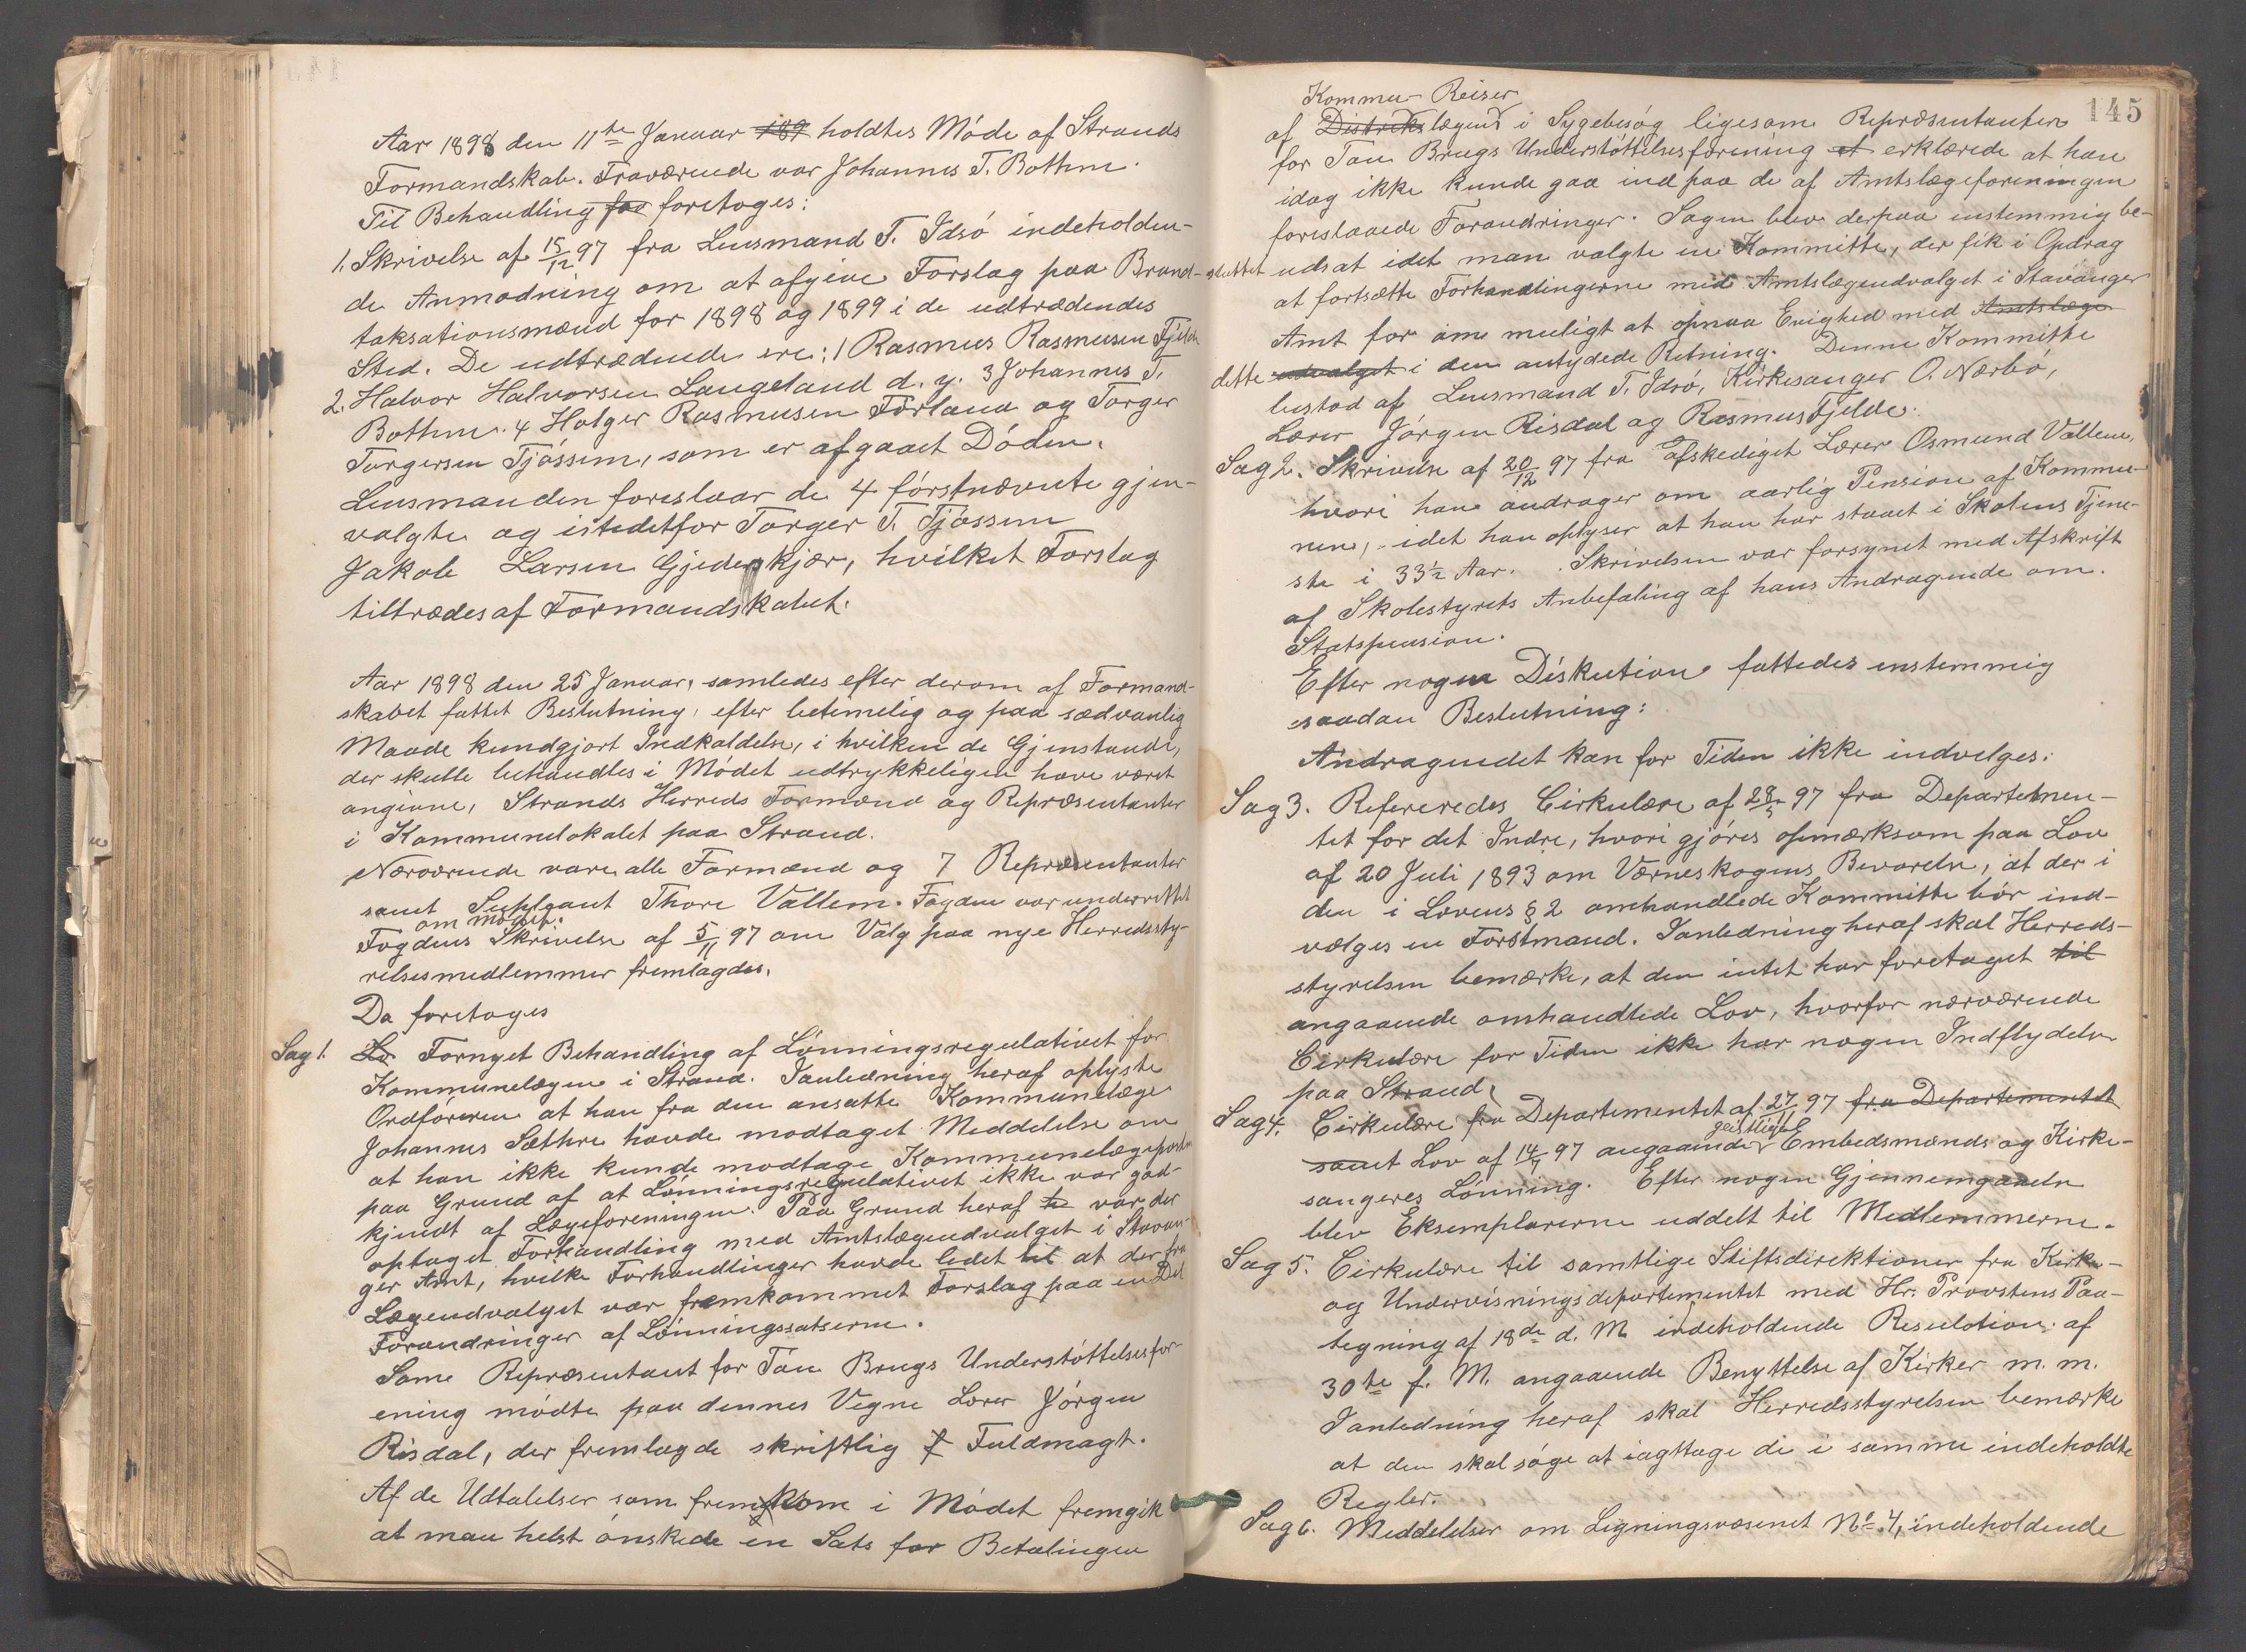 Aar 1898 den 11te Januar 189 holdtes Møde af Strands
Formandskab. Fraværende var Johannes T. Bothne.
Til Behandling for foretoges:
1. Skrivelse af 15/12 97 fra Lensmand T. Idsø indeholden-
de Anmodning om at afgive Forslag paa Brand-
taksationsmænd for 1898 og 1899 i de udtrædendes
Sted. De udtrædende ere: 1 Rasmus Rasmusen Fjelde
2. Halvor Halvorsen Langeland d. y. 3 Johannes T.
Bothne. 4 Holger Rasmusen Førland og Torger
Torgersen Tjøssem, som er afgaaet Døden.
Lensmanden foreslaar de 4 førstnævnte gjen-
valgte og istedetfor Torger T. Tjøssem
Jakob Larsen Gjederskjær, hvilket Forslag
tiltrædes af Formandskabet.
Aar 1898 den 25 Januar, samledes efter derom af Formand-
skabet fattet Beslutning, efter betimelig og paa sædvanlig
Maade kundgjort Indkaldelse, i hvilken de Gjenstande,
der skulle behandles i Mødet udtrykkeligen have været
angivne, Strands Herreds Formænd og Repræsentanter
i Kommunelokalet paa Strand.
Nærværende vare alle Formænd og 7 Repræsentanter
samt Supleant Thore Vallem. Fogden var underrettet
om mødet.
Fogdens Skrivelse af 5/11 97 om Valg paa nye Herredssty-
relsesmedlemmer fremlagdes.
Da foretoges
Sag 1. Lø Fornyet Behandling af Lønningsregulativet for
Kommunelægen i Strand. Ianledning heraf oplyste
Ordføreren at han fra den ansatte Kommunelæge
Johannes Sæthre havde modtaget Meddelelse om
at han ikke kunde modtage Kommunelægeposten
paa Grund af at Lønningsregulativet ikke var god-
kjendt af Lægeforeningen. Paa Grund heraf var der
optaget Forhandling med Amtslægeudvalget i Stavan-
ger Amt, hvilke Forhandlinger havde ledet til at der fra
Lægeudvalget var fremkommet Forslag paa en Del
Forandringer af Lønningssatserne.
Some Repræsentant for Tau Brugs Understøttelsesfor-
ening mødte paa dennes Vegne Lærer Jørgen
Risdal, der fremlagde skriftlig f Fuldmagt.
Af de Udtalelser som fremkom i Mødet fremgik
at man helst ønskede en Sats for Betalingen
145
Kommu- Reiser
af Distriktslægens i Sygebesøg ligesom Repræsentanten
for Tau Brugs Understøttelsesforening at erklærede at han
idag ikke kunde gaa ind paa de af Amtslægeforeningen
foreslaaede Forandringer. Sagen blev derpaa enstemmig be-
sluttet udsat idet man valgte en Kommitte, der fik i Opdrag
at fortsætte Forhandlingerne med Amtslægeudvalget i Stavanger
Amt for om muligt at opnaa Enighed med Amtslæge
dette udvalget i den antydede Retning. Denne Kommitte
bestod af Lensmand T. Idsø, Kirkesanger O. Nærbø,
Lærer Jørgen Risdal og Rasmus Fjelde.
Sag 2. Skrivelse af 20/12 97 fra afskediget Lærer Osmund Vallem,
hvori han andrager om aarlig Pension af Kommu-
nen, idet han oplyser at han har staaet i Skolens Tjene-
ste i 33½ Aar. Skrivelsen var forsynet med Afskrift
af Skolestyrets Anbefaling af hans Andragende om
Statspension.
Efter nogen Diskution fattedes enstemmig
saadan Beslutning:
Andragendet kan for Tiden ikke indvilges.
Sag 3. Refereredes Cirkulære af 28/5 97 fra Departemen-
tet for det Indre, hvori gjøres opmærksom paa Lov
af 20 Juli 1893 om Værneskogens Bevarelse, at der i
den i Lovens § 2 omhandlede Kommitte bør ind-
vælges en Forstmand. Ianledning heraf skal Herreds-
styrelsen bemærke, at den intet har foretaget til
angaaende omhandlede Lov, hvorfor nærværende
Cirkulære for Tiden ikke har nogen Indflydelse
paa Strand.
Sag 4. Cirkulære fra Departementet af 27/11 97 fra Departementet
geistlige
samt Lov af 14/7 97 angaaende Embedsmænds og Kirke-
sangeres Lønning. Efter nogen Gjennemgaaelse
blev Eksemplarerne uddelt til Medlemmerne.
Sag 5. Cirkulære til samtlige Stiftsdirektioner fra Kirke-
og Undervisningsdepartementet med Hr. Provstens Paa-
tegning af 18de d. M. indeholdende Resulotion af
30te f. M. angaaende Benyttelse af Kirker m. m.
Ianledning heraf skal Herredsstyrelsen bemærke
at den skal søge at iagttage de i samme indeholdte
Regler.
Sag 6. Meddelelser om Ligningsvæsenet No. 4, indeholdende